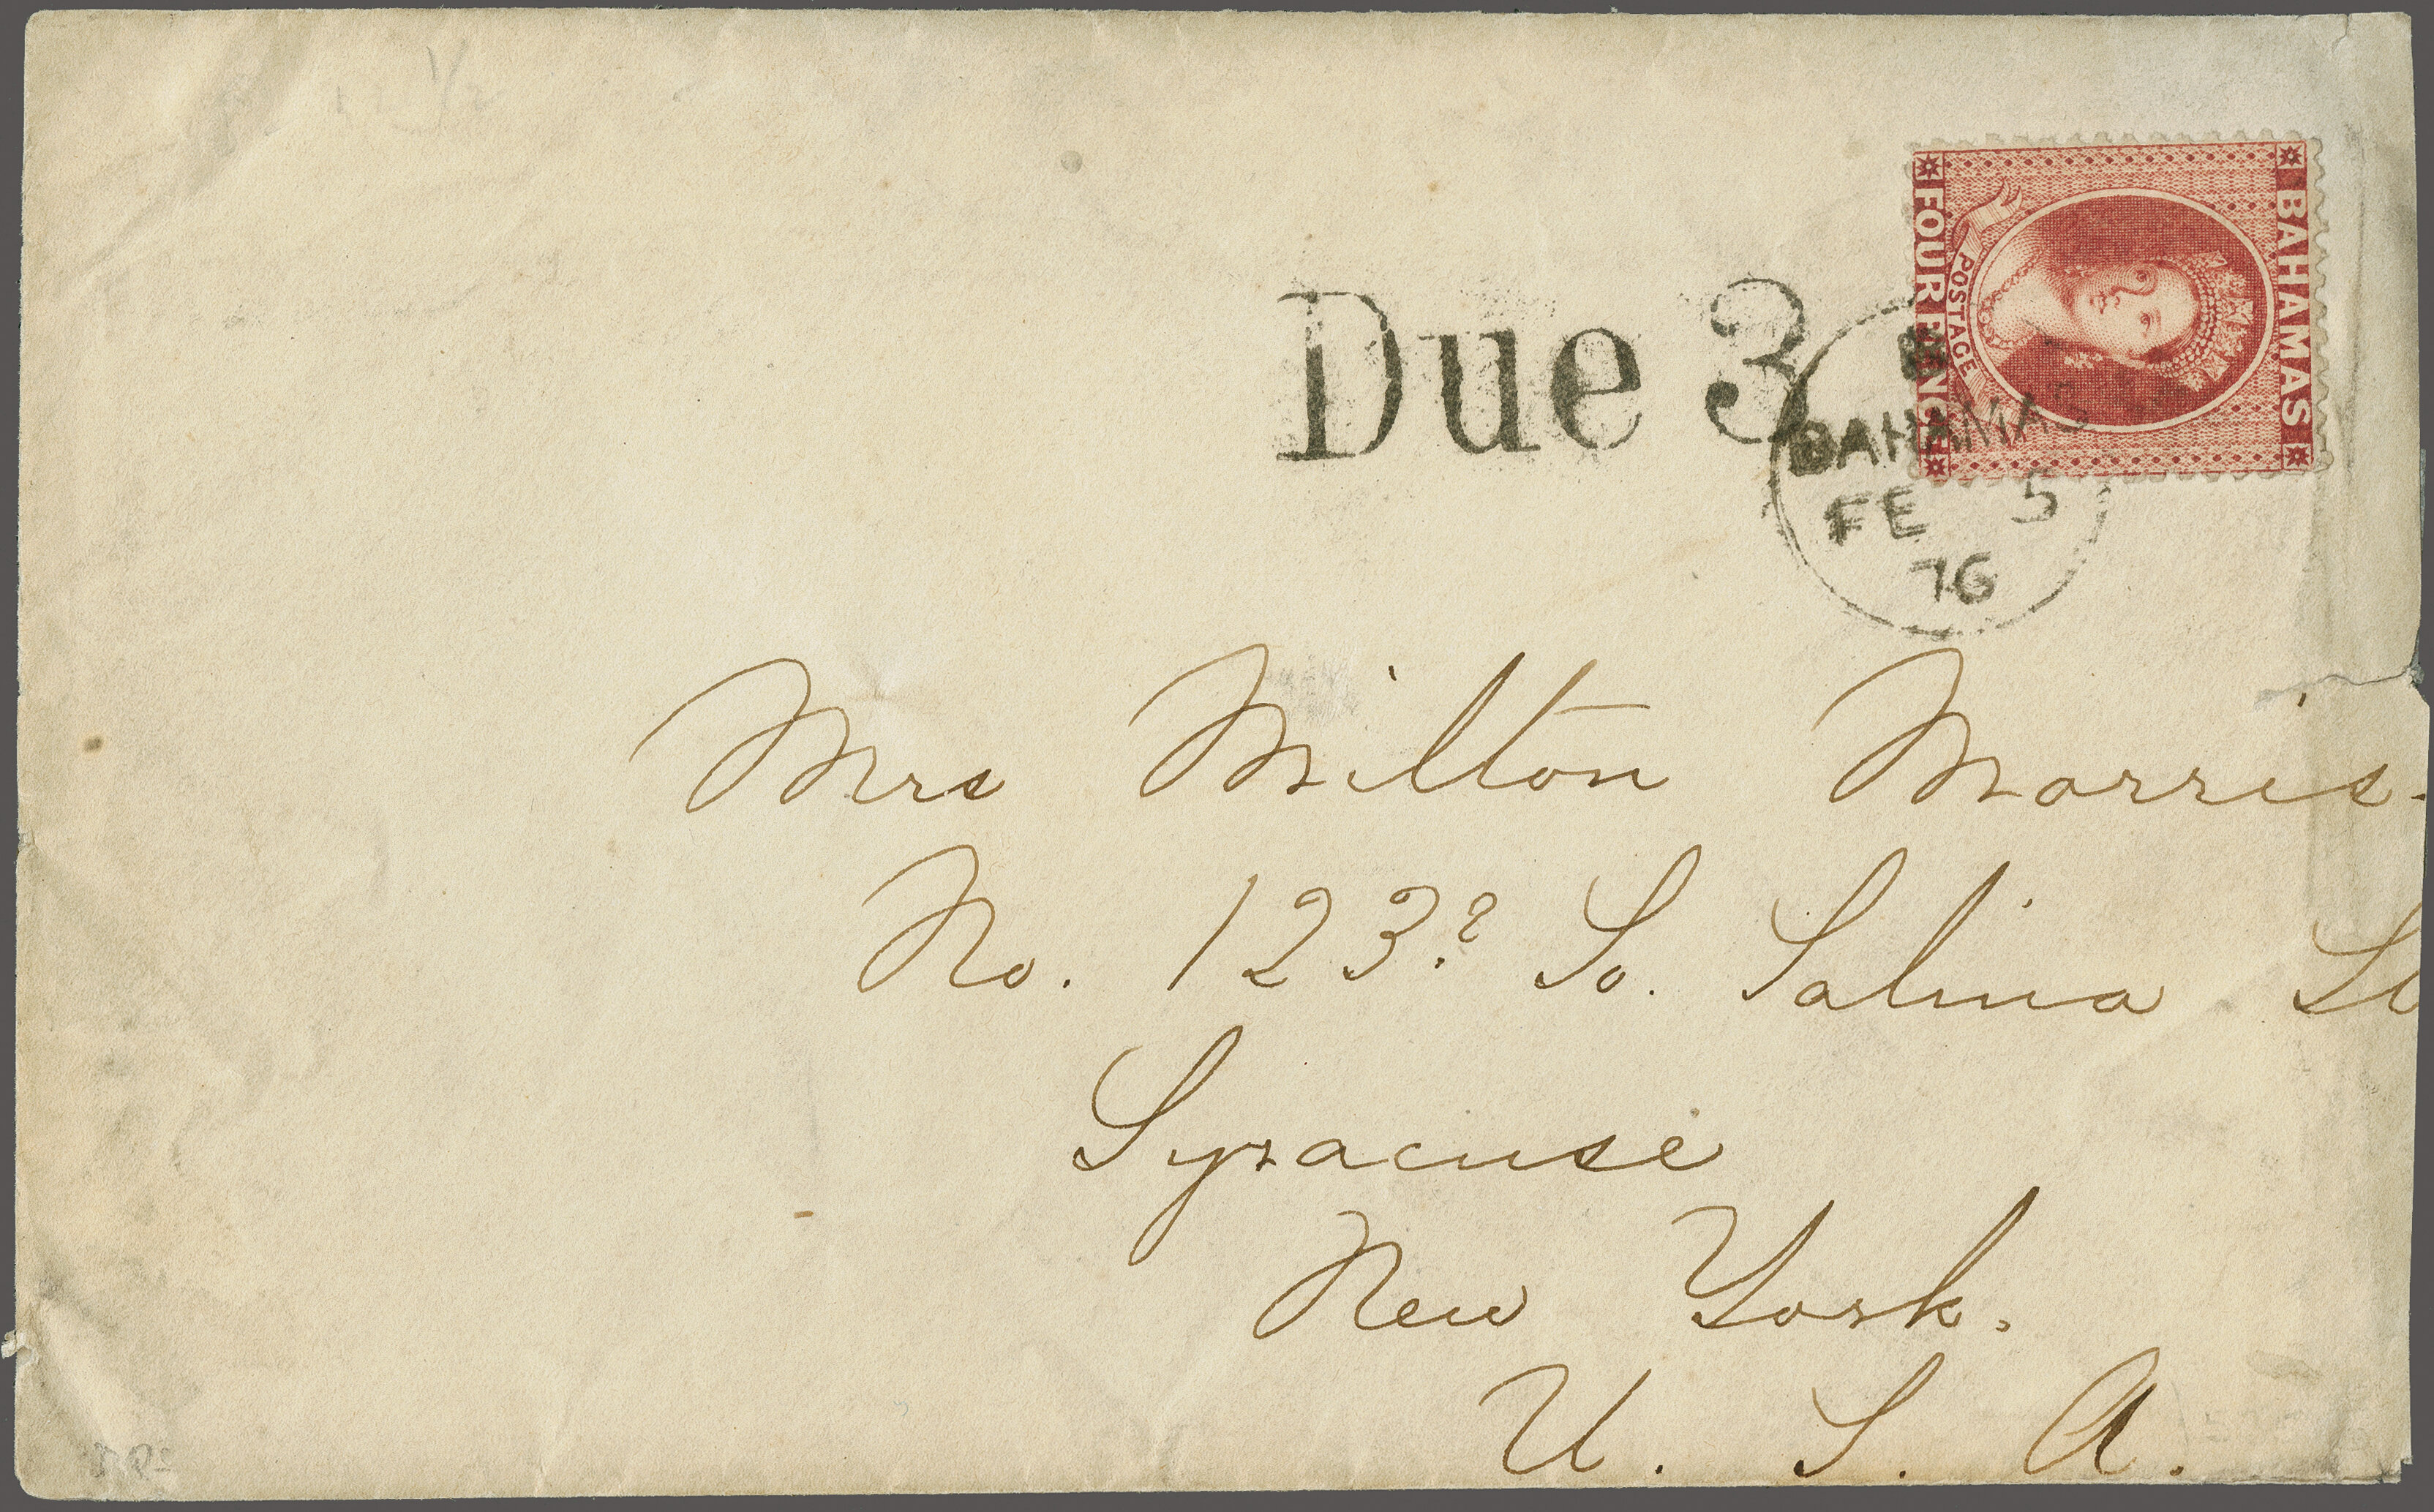 BAHAMAS
POSTAGE
FOUR PENCE
Due 3
B
BAHAMAS
FE 5
76
Mrs Milton Morris.
No. 123? So. Salina St
Syracuse
New York.
U. S. A.